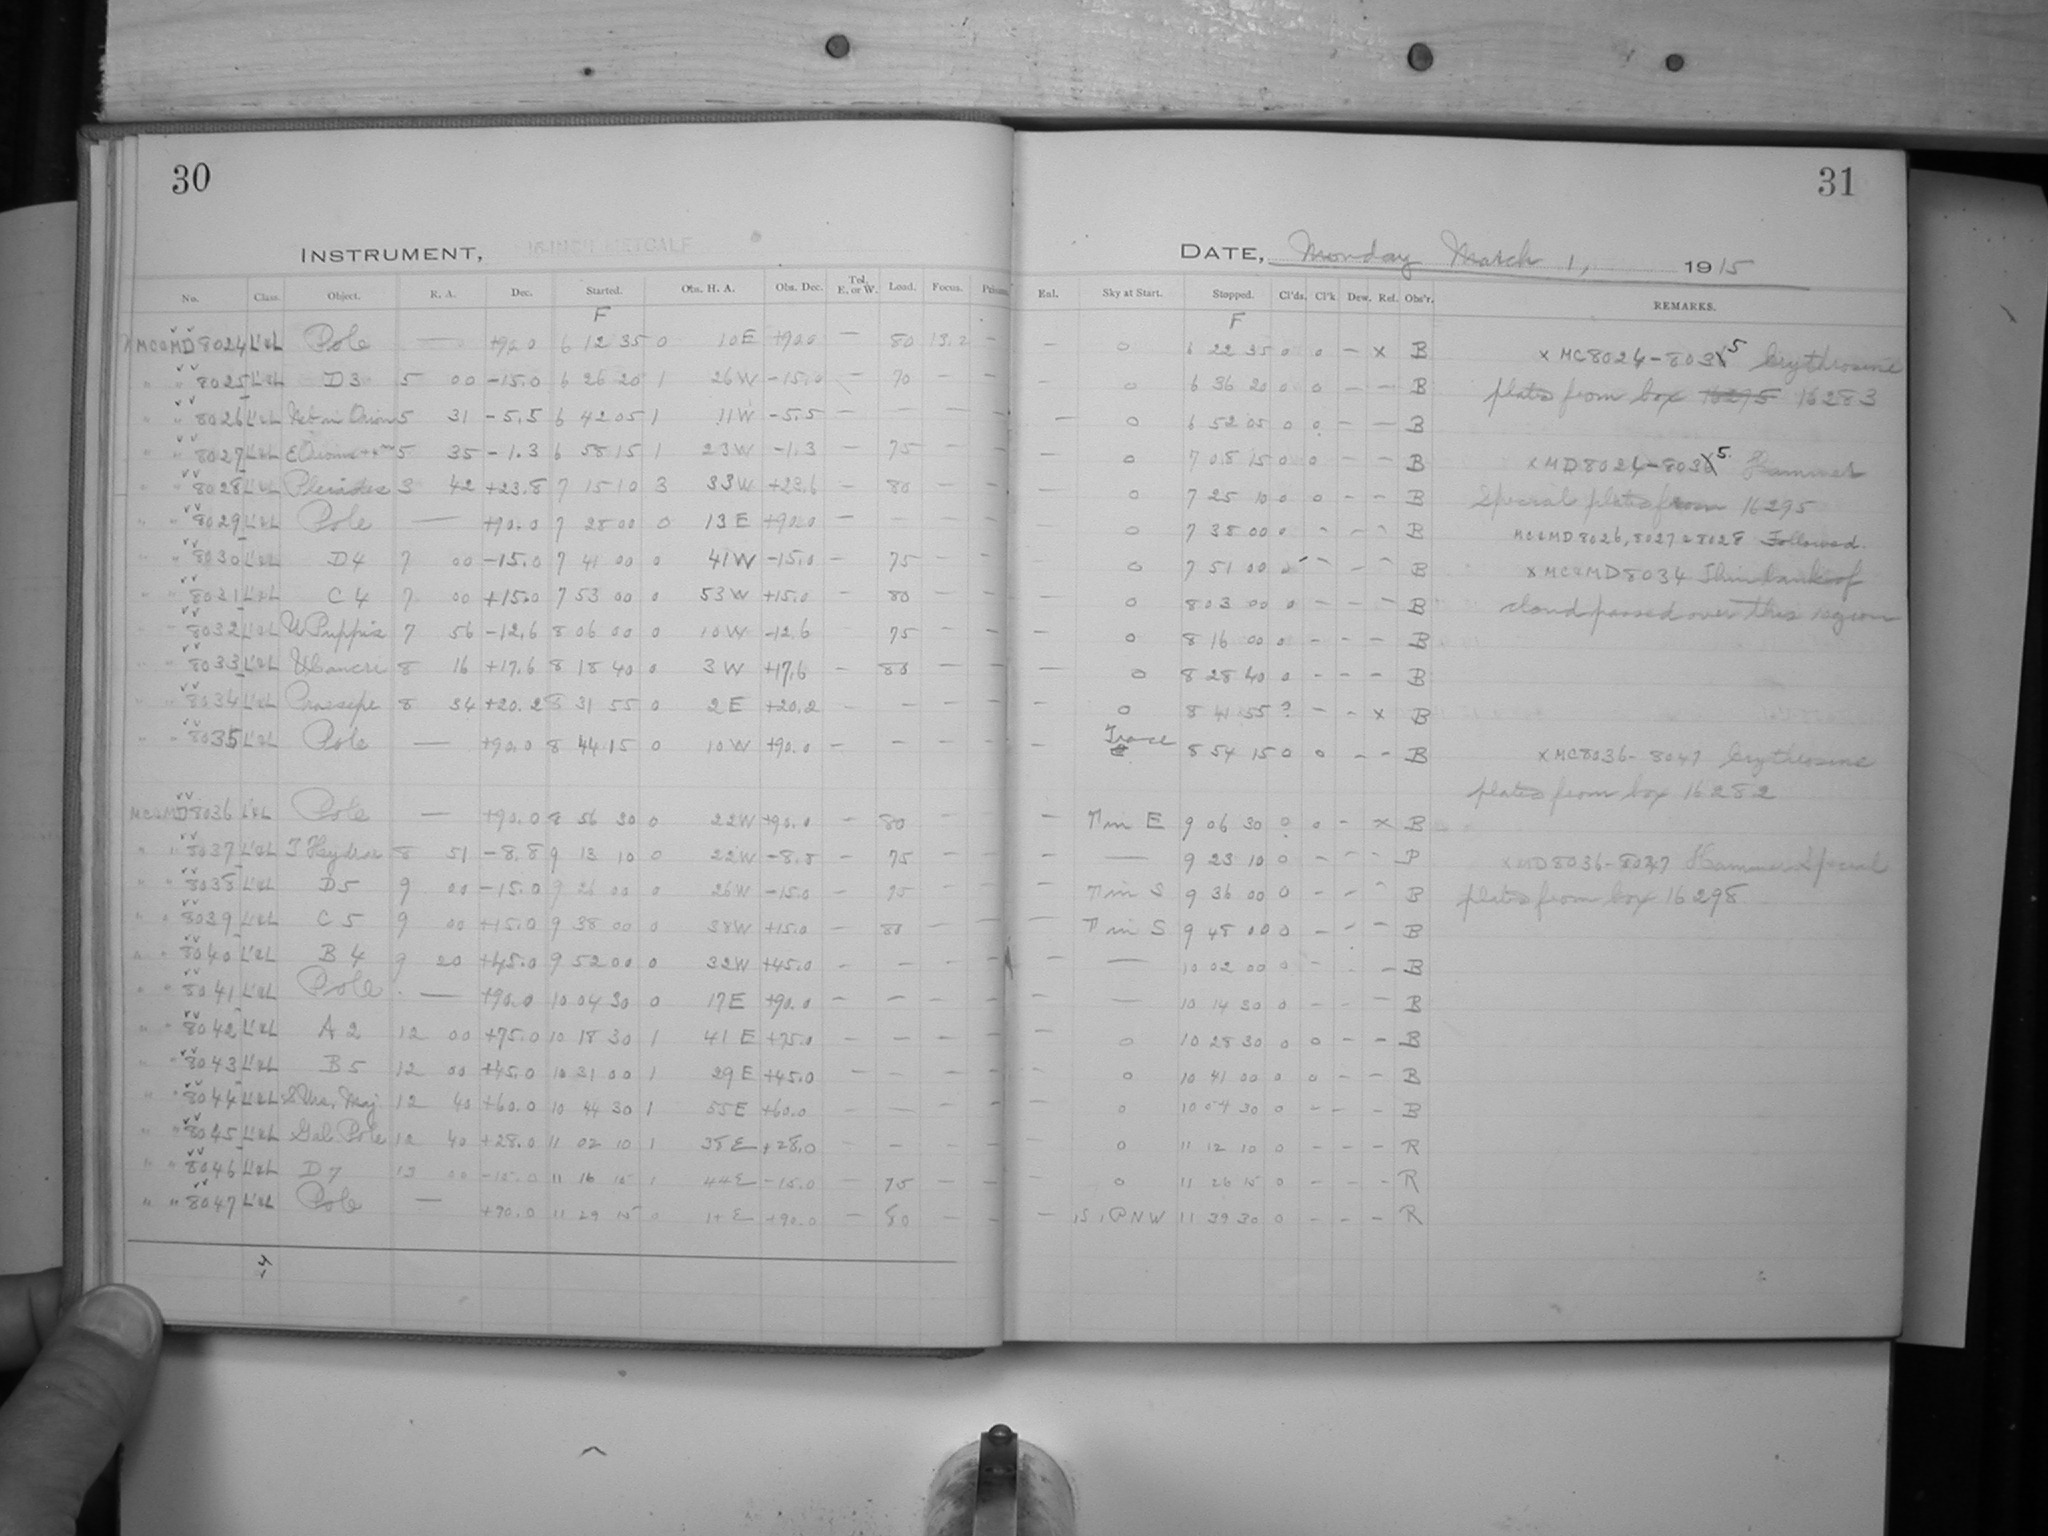 30
INSTRUMENT, 16-INCH METCALF
No. Class. Object. R. A. Dec. Started. Obs. H. A. Obs. Dec. Tel. E. or W. Load. Focus.
F
MC&MD8024 L'&L Pole — +90.0 6 12 35 0 10E +90.0 — 80 13.2 —
" " 8025 L'&L D3 5 00 -15.0 6 26 20 1 26W -15.0 — 70 — —
" " 8026 L'&L Neb in Orion 5 31 -5.5 6 42 05 1 11W -5.5 — — — —
" " 8027 L'&L 5 35 -1.3 6 58 15 1 23W -1.3 — 75 — —
" " 8028 L'&L Pleiades 3 42 +23.8 7 15 10 3 33W +23.6 — 80 — —
" " 8029 L'&L Pole — +90.0 7 28 00 0 13E +90.0 — — — —
" " 8030 L'&L D4 7 00 -15.0 7 41 00 0 41W -15.0 — 75 — —
" " 8031 L'&L C4 7 00 +15.0 7 53 00 0 53W +15.0 — 80 — —
" " 8032 L'&L U Puppis 7 56 -12.6 8 06 00 0 10W -12.6 — 75 — —
" " 8033 L'&L V Cancri 8 16 +17.6 8 18 40 0 3W +17.6 — 80 — —
" " 8034 L'&L Praesepe 8 34 +20.2 8 31 55 0 2E +20.2 — — — —
" " 8035 L'&L Pole — +90.0 8 44 15 0 10W +90.0 — — — —
MC&MD8036 L'&L Pole — +90.0 8 56 30 0 22W +90.0 — 80 — —
" " 8037 L'&L T Hydrae 8 51 -8.8 9 13 10 0 22W -8.8 — 75 — —
" " 8038 L'&L D5 9 00 -15.0 9 26 00 0 26W -15.0 — 75 — —
" " 8039 L'&L C5 9 00 +15.0 9 38 00 0 38W +15.0 — 80 — —
" " 8040 L'&L B4 9 20 +45.0 9 52 00 0 32W +45.0 — — — —
" " 8041 L'&L Pole — +90.0 10 04 30 0 17E +90.0 — — — —
" " 8042 L'&L A2 12 00 +75.0 10 18 30 1 41E +75.0 — — — —
" " 8043 L'&L B5 12 00 +45.0 10 31 00 1 29E +45.0 — — — —
" " 8044 L'&L Urs. Maj 12 40 +60.0 10 44 30 1 55E +60.0 — — — —
" " 8045 L'&L Gal. Pole 12 40 +28.0 11 02 10 1 38E +28.0 — — — —
" " 8046 L'&L D7 13 00 -15.0 11 16 15 1 44E -15.0 — 75 — —
" " 8047 L'&L Pole — +90.0 11 29 15 0 14E +90.0 — 80 — —
31
DATE, Monday March 1, 1915
Enl. Sky at Start. Stopped. Cl'ds. Cl'k Dew. Ref. Obs'r. REMARKS.
F
— 0 6 22 35 0 0 — x B
0 6 36 20 0 0 — — B
— 0 6 52 05 0 0 — — B
— 0 7 08 15 0 0 — — B
— 0 7 25 10 0 0 — — B
0 7 38 00 0 — — — B
— 0 7 51 00 0 — — — B
— 0 8 03 00 0 — — — B
— 0 8 16 00 0 — — — B
— 0 8 28 40 0 — — — B
— 0 8 41 55 ? — — x B
— Trace 8 54 15 0 0 — — B
— in E 9 06 30 0 0 — x B
— — 9 23 10 0 — — — P
— in S 9 36 00 0 — — — B
— in S 9 48 00 0 — — — B
— — 10 02 00 0 — — — B
— — 10 14 30 0 — — — B
— 0 10 28 30 0 0 — — B
0 10 41 00 0 0 — — B
0 10 54 30 0 — — — B
— 0 11 12 10 0 — — — R
— 0 11 26 15 0 — — — R
— NW 11 39 30 0 — — — R
x MC8024-8035 Erythrosine
plates from box 16295 16283
x MD8024-8035 Hammer
Special plates from 16295
MC&MD8026, 8027 & 8028 Followed.
x MC&MD8034 Thin bank of
cloud passed over this region
x MC8036-8047 Erythrosine
plates from box 16282
x MD8036-8047 Hammer Special
plates from box 16298